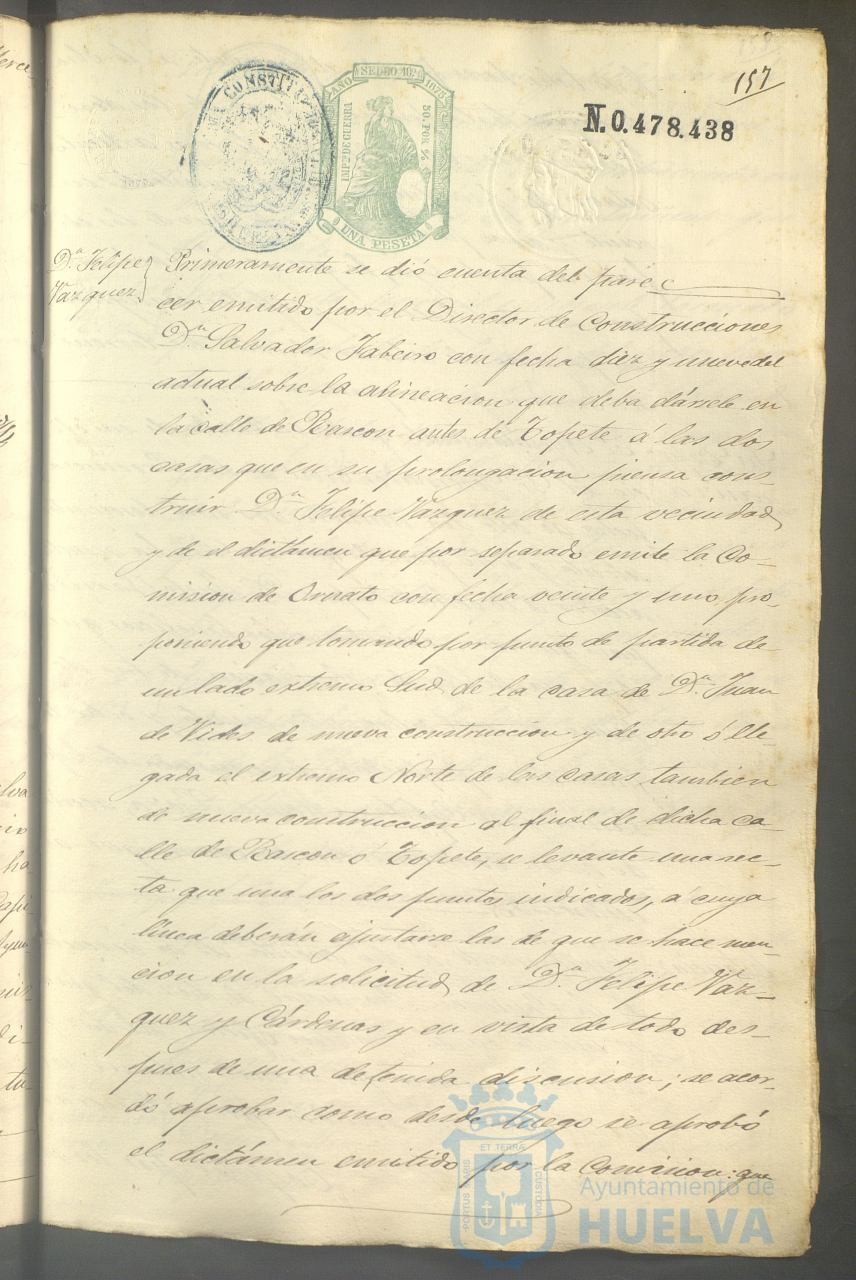 157
N.0.478.438
AÑO SELLO 10º 1875
IMPtº DE GUERRA
50. POR %
UNA PESETA
CONSTITU
Dn Felipe
Vazquez
Primeramente se dió cuenta del pare
cer emitido por el Director de Construcciones
Dn Salvador Fabeiro con fecha diez y nueve del
actual sobre la alineacion que deba dársele en
la calle de Rascon antes de Topete á las dos
casas que en su prolongacion piensa cons-
truir Dn Felipe Vazquez de esta vecindad
y de el dictámen que por separado emite la Co-
mision de Ornato con fecha veinte y uno, pro-
poniendo que tomando por punto de partida de
un lado extremo Sud de la casa de Dn Juan
de Vides de nueva construccion y de otro ó lle-
gada el extremo Norte de las casas tambien
de nueva construccion al final de dicha ca-
lle de Rascon ó Topete, se levante una rec-
ta que una los dos puntos indicados, á cuya
linea deberán ajustarse las de que se hace men-
cion en la solicitud de Dn Felipe Vaz-
quez y Cárdenas y en vista de todo des-
pues de una detenida discusion; se acor-
dó aprobar como desde luego se aprobó
el dictámen emitido por la Comision: que
PORTUS MARIS ET TERRAE CUSTODIA
Ayuntamiento de
HUELVA